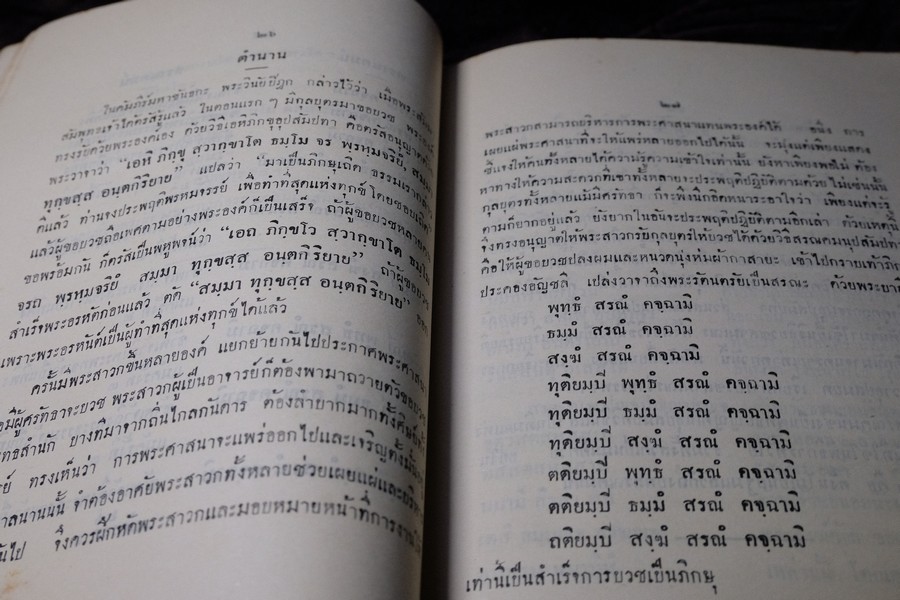 ๒๖
ตำนาน
ในคัมภีร์มหาขันธกะ พระวินัยปิฎก กล่าวไว้ว่า เมื่อ
สัมพุทธเจ้าได้ตรัสรู้แล้ว ในตอนแรก ๆ มีกุลบุตรมาขอบวช
ทรงรับด้วยพระองค์เอง ด้วยวิธีเอหิภิกขุอุปสัมปทา คือตรัสอนุญาตด้วย
พระวาจาว่า “เอหิ ภิกฺขุ สฺวากฺขาโต ธมฺโม จร พฺรหฺมจริยํ สมฺมา
ทุกฺขสฺส อนฺตกิริยาย” แปลว่า “มาเป็นภิกษุเถิด ธรรมเรากล่าว
ดีแล้ว ท่านจงประพฤติพรหมจรรย์ เพื่อทำที่สุดแห่งทุกข์โดยชอบเถิด”
แล้วผู้ขอบวชถือเพศตามอย่างพระองค์ก็เป็นเสร็จ ถ้าผู้ขอบวชหลายคน
ขอพร้อมกัน ก็ตรัสเป็นพหูพจน์ว่า “เอถ ภิกฺขโว สฺวากฺขาโต ธมฺโม
จรถ พฺรหฺมจริยํ สมฺมา ทุกฺขสฺส อนฺตกิริยาย” ถ้าผู้
สำเร็จพระอรหัตก่อนแล้ว ตัด “สมฺมา ทุกฺขสฺส อนฺตกิริยาย”
เพราะพระอรหันต์เป็นผู้ทำที่สุดแห่งทุกข์ได้แล้ว
ครั้นมีพระสาวกขึ้นหลายองค์ แยกย้ายกันไปประกาศพระศาสนา
มีผู้ศรัทธาจะบวช พระสาวกผู้เป็นอาจารย์ก็ต้องพามาถวายตัวขอบวช
สำนัก บางที่มาจากถิ่นไกลกันดาร ต้องลำบากมากทั้งศิษย์ทั้ง
ทรงเห็นว่า การพระศาสนาจะแพร่ออกไปและเจริญตั้งมั่น
กาลนานนั้น จำต้องอาศัยพระสาวกทั้งหลายช่วยเผยแผ่และ
จึงควรฝึกหัดพระสาวกและมอบหมายหน้าที่การงาน
๒๗
พระสาวกสามารถบริหารการพระศาสนาแทนพระองค์ได้ อนึ่ง การ
เผยแผ่พระศาสนาที่จะให้แพร่หลายออกไปได้นั้น จะมุ่งแต่เพียงแสดง
ชี้แจงให้คนทั้งหลายได้ความรู้ความเข้าใจเท่านั้น ยังหาเพียงพอไม่ ต้อง
หาทางให้ความสะดวกที่เขาทั้งหลายจะประพฤติปฏิบัติตามด้วย ไม่เช่นนั้น
กุลบุตรทั้งหลายแม้มีศรัทธา ก็จะพึงนึกอิดหนาระอาใจว่า เพียงแต่จะรู้
ตามก็ยากอยู่แล้ว ยังยากในอันจะประพฤติปฏิบัติตามอีกเล่า ด้วยเหตุนี้
จึงทรงอนุญาตให้พระสาวกรับกุลบุตรให้บวชได้ด้วยวิธีสรณคมนุปสัมปทา
คือให้ผู้ขอบวชปลงผมและหนวดนุ่งห่มผ้ากาสายะ เข้าไปกราบเท้าภิกษุ
ประคองอัญชลี เปล่งวาจาถึงพระรัตนตรัยเป็นสรณะ ด้วยพระบาลี
พุทฺธํ สรณํ คจฺฉามิ
ธมฺมํ สรณํ คจฺฉามิ
สงฺฆํ สรณํ คจฺฉามิ
ทุติยมฺปิ พุทฺธํ สรณํ คจฺฉามิ
ทุติยมฺปิ ธมฺมํ สรณํ คจฺฉามิ
ทุติยมฺปิ สงฺฆํ สรณํ คจฺฉามิ
ตติยมฺปิ พุทฺธํ สรณํ คจฺฉามิ
ตติยมฺปิ ธมฺมํ สรณํ คจฺฉามิ
ตติยมฺปิ สงฺฆํ สรณํ คจฺฉามิ
เท่านี้เป็นสำเร็จการบวชเป็นภิกษุ